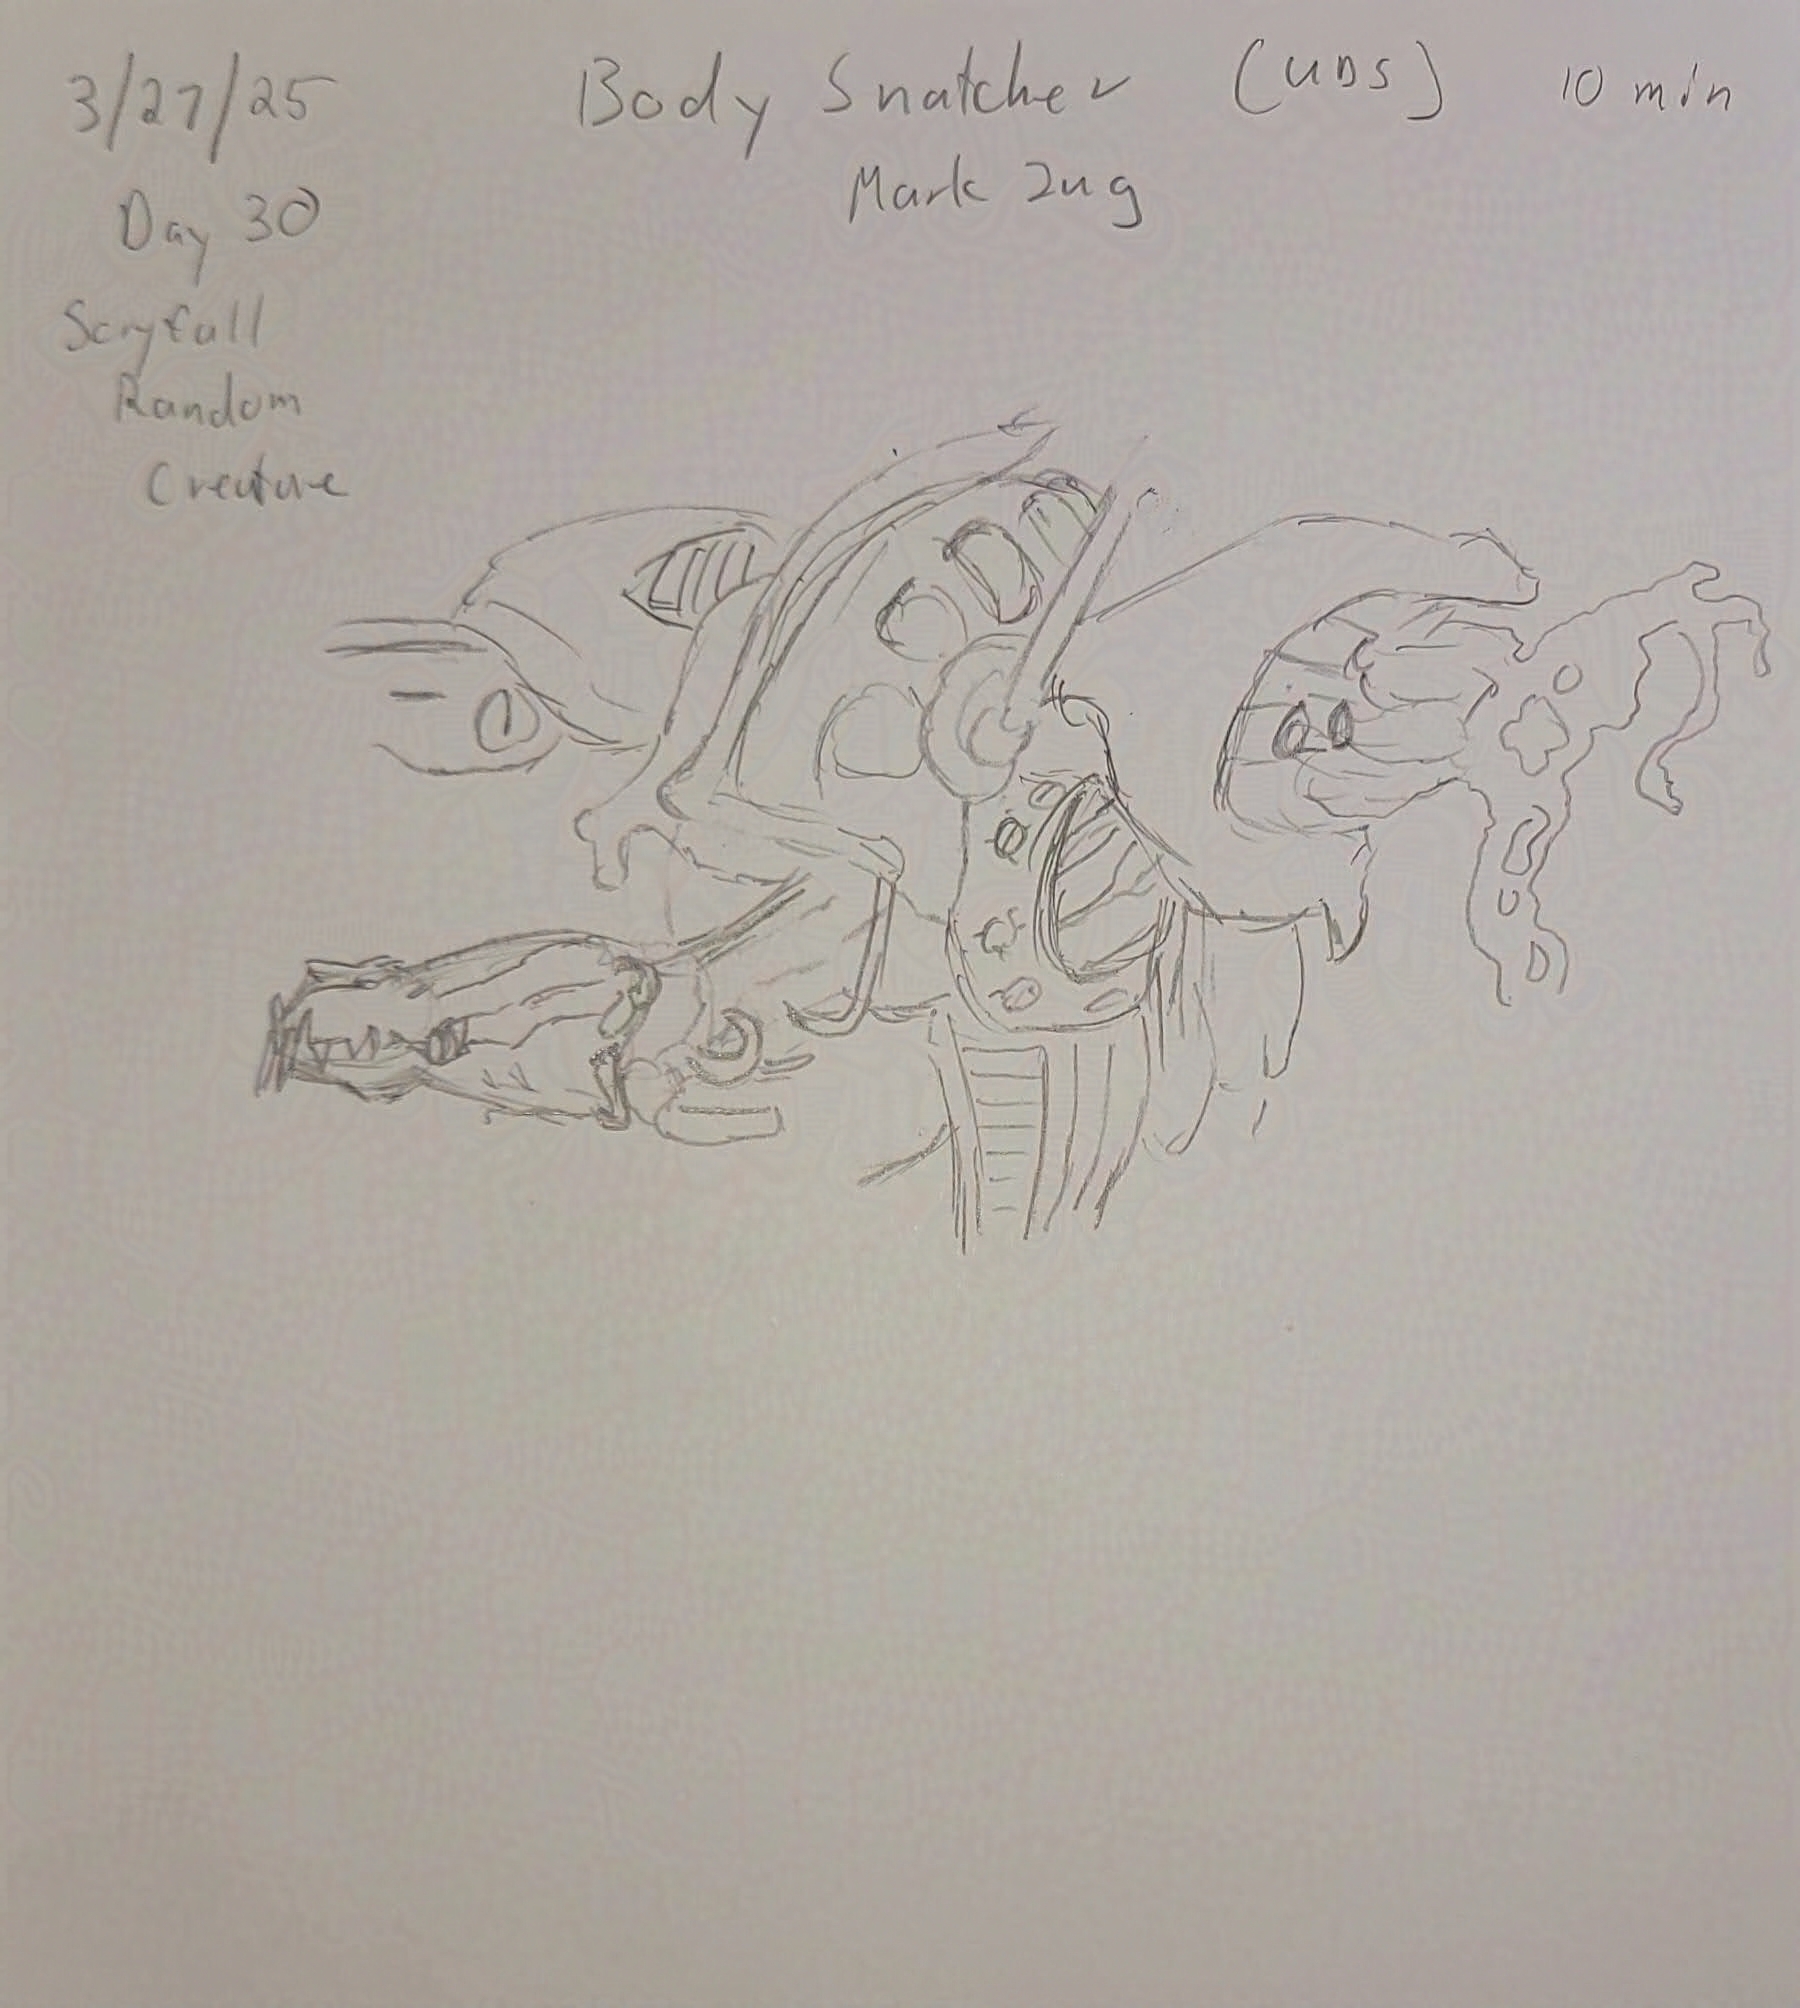 3/27/25
Day 30
Scryfall
Random
Creature
Body Snatcher (UDS) 10 min
Mark Zug